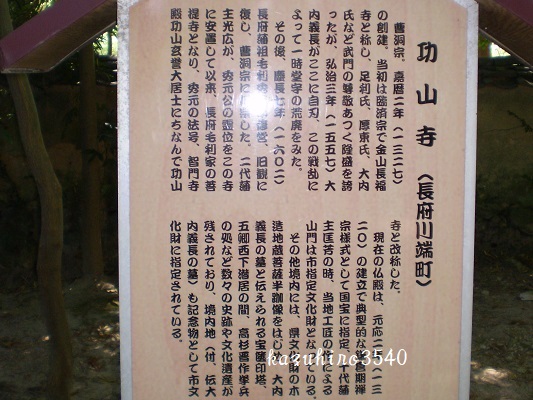 功山寺（長府川端町）
曹洞宗、嘉暦二年（一三二七）
の創建、当初は臨済宗で金山長福
寺と称し、足利氏、厚東氏、大内
氏など武門の尊敬あつく隆盛を誇
ったが、弘治三年（一五五七）大
内義長がここに自刃、この戦乱に
よって一時堂宇の荒廃をみた。
その後、慶長七年（一六〇二）
長府藩祖毛利秀元が修営、旧観に
復し、曹洞宗に転宗した。二代藩
主光広が、秀元公の霊位をこの寺
に安置して以来、長府毛利家の菩
提寺となり、秀元の法号、智門寺
殿功山玄誉大居士にちなんで功山
寺と改称した。
現在の仏殿は、元応二年（一三
二〇）の建立で典型的な鎌倉期禅
宗様式として国宝に指定、十代藩
主匡芳の時、当地工匠の作による
山門は市指定文化財となっている。
その他境内には、県文化財の木
造地蔵菩薩半跏像をはじめ、大内
義長の墓と伝えられる宝篋印塔、
五卿西下潜居の間、高杉晋作挙兵
の処など数々の史跡や文化遺産が
残されており、境内地（付、伝大
内義長の墓）も記念物として市文
化財に指定されている。
kazuhiro3540